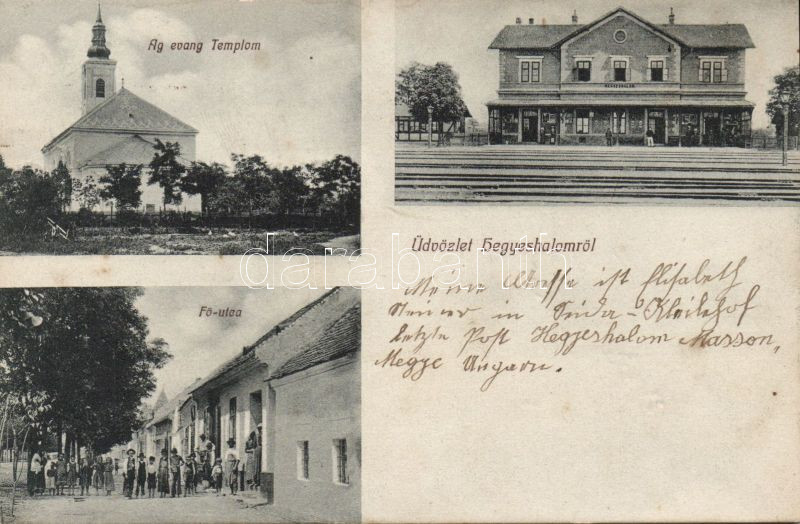 Ag evang Templom
HEGYESHALOM
Üdvözlet Hegyeshalomról
darabanth
Fő-utca
Meine Adresse ist Elisabeth
Steiner in
letzte Post Hegyeshalom Masson,
Megye Ungarn.